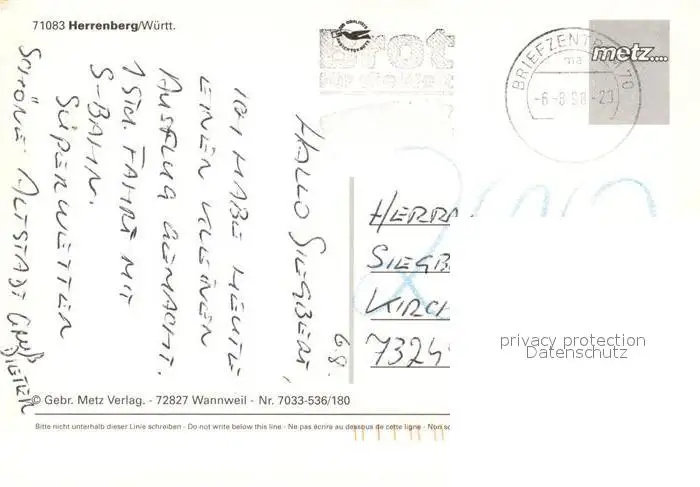 71083 Herrenberg/Württ.
Brot
für die Welt
BRIEFZENTRUM 70
ma
-6.-8.98.-20
metz....
6.8.
HALLO SIEGBERT,
ICH HABE HEUTE
EINEN KLEINEN
AUSFLUG GEMACHT.
1 STD. FAHRT MIT
S-BAHN.
SUPERWETTER
SCHÖNE ALTSTADT GRUß
DIETER
HERRN
SIEGB
KIRCH
7324
privacy protection
Datenschutz
© Gebr. Metz Verlag. - 72827 Wannweil - Nr. 7033-536/180
Bitte nicht unterhalb dieser Linie schreiben - Do not write below this line - Ne pas écrire au dessous de cette ligne - Non sc